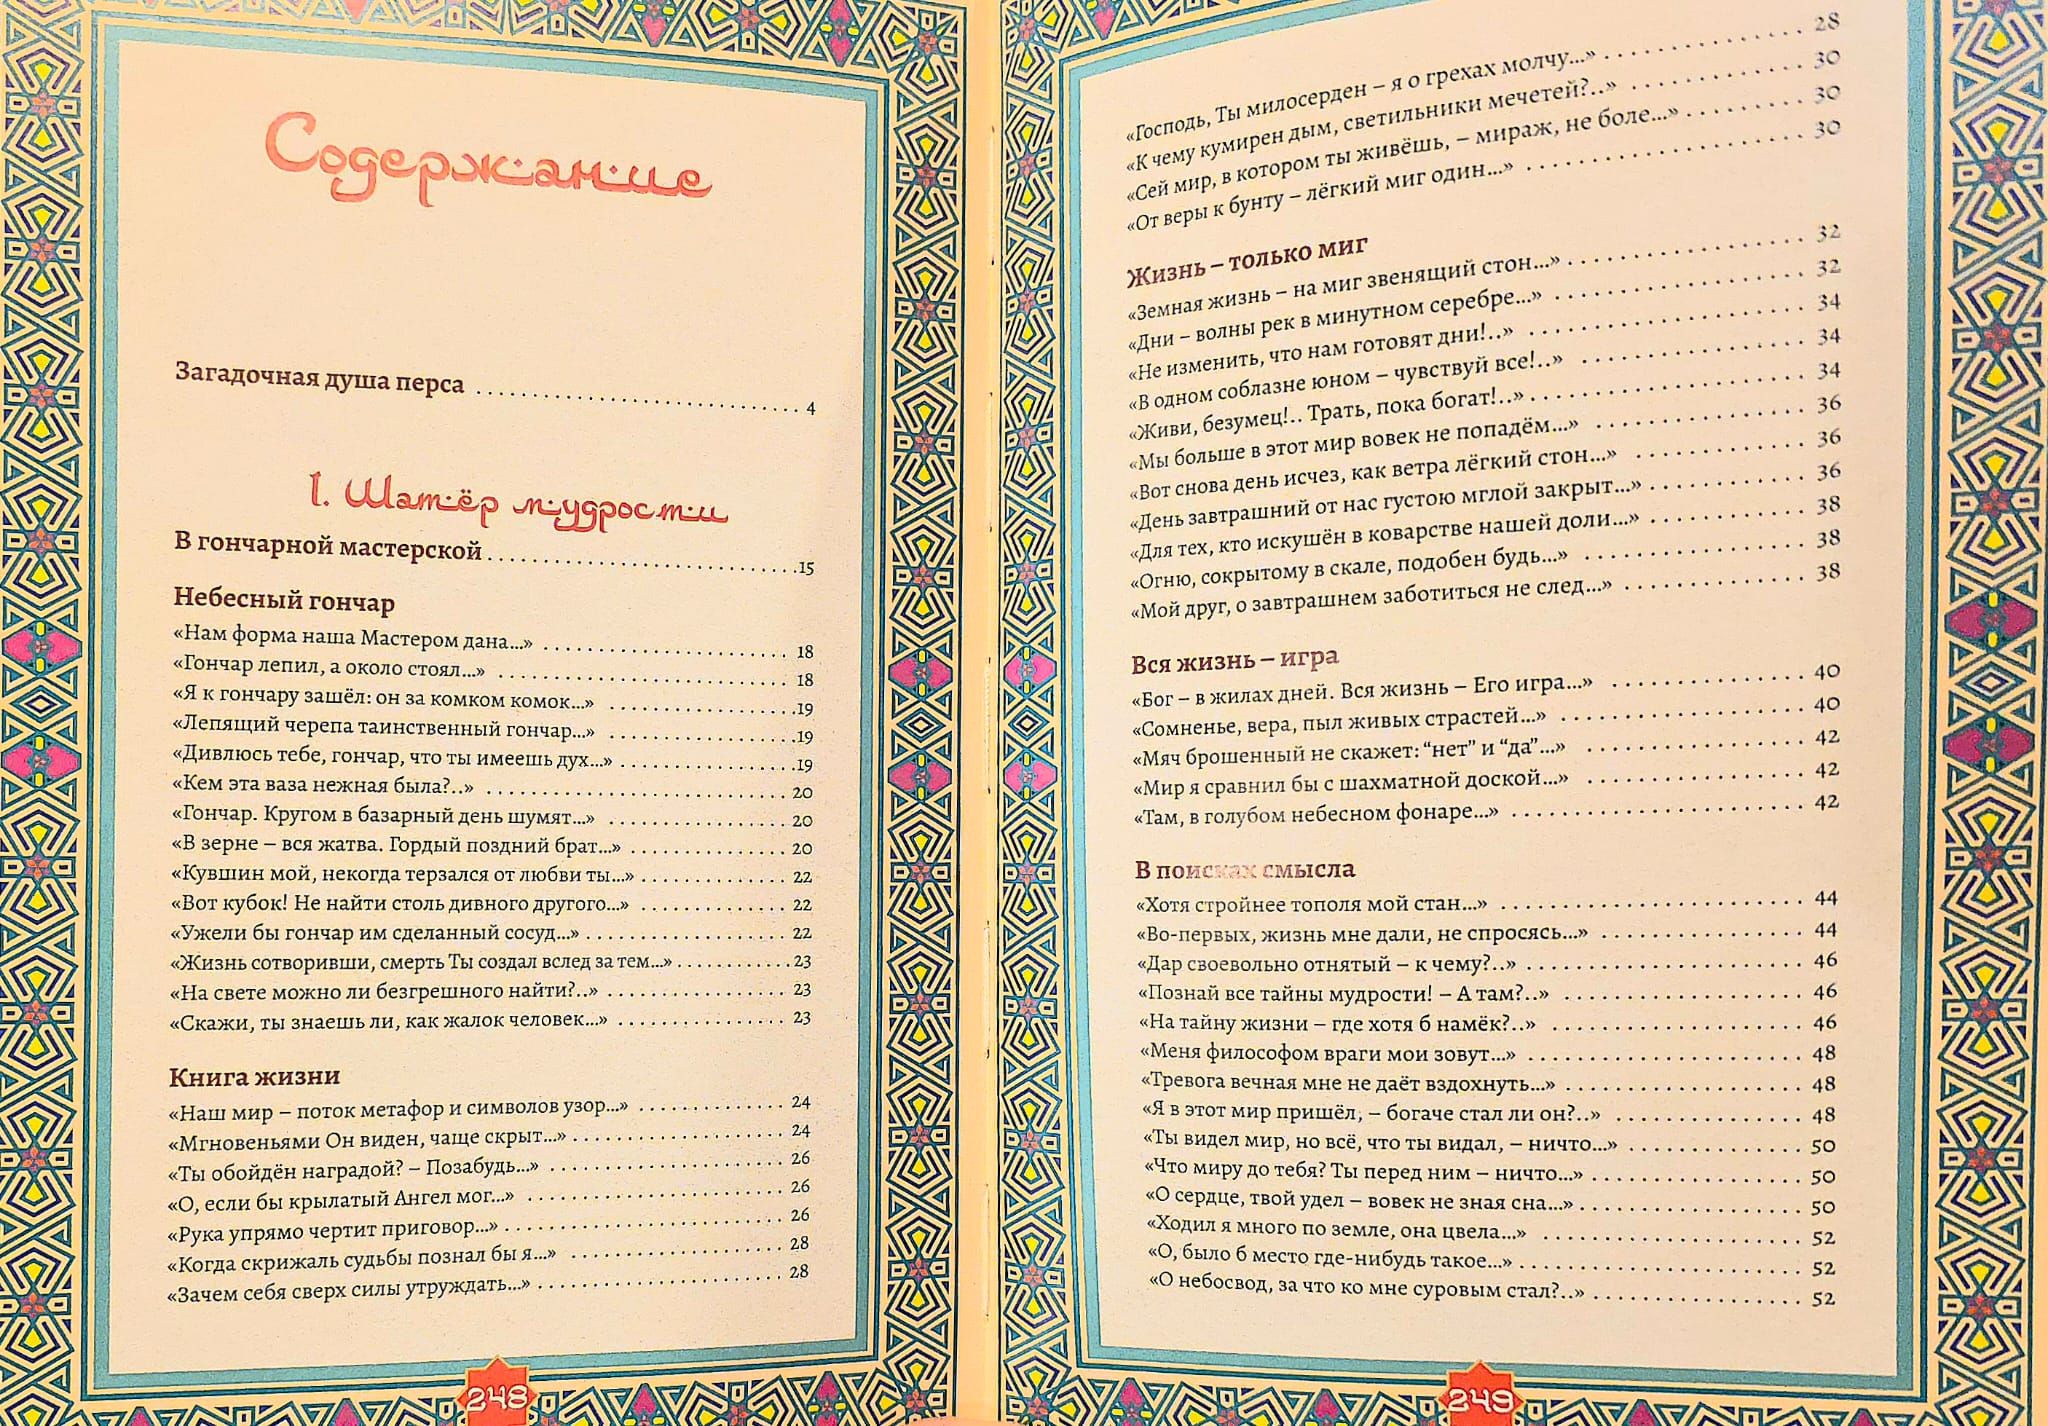 Содержание
Загадочная душа перса . . . . . . . . . . 4
I. Шатёр мудрости
В гончарной мастерской . . . . . . . . . . 15
Небесный гончар
«Нам форма наша Мастером дана...» . . . . . . . . . . 18
«Гончар лепил, а около стоял...» . . . . . . . . . . 18
«Я к гончару зашёл: он за комком комок...» . . . . . . . . . . 19
«Лепящий черепа таинственный гончар...» . . . . . . . . . . 19
«Дивлюсь тебе, гончар, что ты имеешь дух...» . . . . . . . . . . 19
«Кем эта ваза нежная была?..» . . . . . . . . . . 20
«Гончар. Кругом в базарный день шумят...» . . . . . . . . . . 20
«В зерне – вся жатва. Гордый поздний брат...» . . . . . . . . . . 20
«Кувшин мой, некогда терзался от любви ты...» . . . . . . . . . . 22
«Вот кубок! Не найти столь дивного другого...» . . . . . . . . . . 22
«Ужели бы гончар им сделанный сосуд...» . . . . . . . . . . 22
«Жизнь сотворивши, смерть Ты создал вслед за тем...» . . . . . . . . . . 23
«На свете можно ли безгрешного найти?..» . . . . . . . . . . 23
«Скажи, ты знаешь ли, как жалок человек...» . . . . . . . . . . 23
Книга жизни
«Наш мир – поток метафор и символов узор...» . . . . . . . . . . 24
«Мгновеньями Он виден, чаще скрыт...» . . . . . . . . . . 24
«Ты обойдён наградой? – Позабудь...» . . . . . . . . . . 26
«О, если бы крылатый Ангел мог...» . . . . . . . . . . 26
«Рука упрямо чертит приговор...» . . . . . . . . . . 26
«Когда скрижаль судьбы познал бы я...» . . . . . . . . . . 28
«Зачем себя сверх силы утруждать...» . . . . . . . . . . 28
248
«Господь, Ты милосерден – я о грехах молчу...» . . . . . . . . . . 28
«К чему кумирен дым, светильники мечетей?..» . . . . . . . . . . 30
«Сей мир, в котором ты живёшь, – мираж, не боле...» . . . . . . . . . . 30
«От веры к бунту – лёгкий миг один...» . . . . . . . . . . 30
Жизнь – только миг
«Земная жизнь – на миг звенящий стон...» . . . . . . . . . . 32
«Дни – волны рек в минутном серебре...» . . . . . . . . . . 32
«Не изменить, что нам готовят дни!..» . . . . . . . . . . 34
«В одном соблазне юном – чувствуй все!..» . . . . . . . . . . 34
«Живи, безумец!.. Трать, пока богат!..» . . . . . . . . . . 34
«Мы больше в этот мир вовек не попадём...» . . . . . . . . . . 36
«Вот снова день исчез, как ветра лёгкий стон...» . . . . . . . . . . 36
«День завтрашний от нас густою мглой закрыт...» . . . . . . . . . . 36
«Для тех, кто искушён в коварстве нашей доли...» . . . . . . . . . . 38
«Огню, сокрытому в скале, подобен будь...» . . . . . . . . . . 38
«Мой друг, о завтрашнем заботиться не след...» . . . . . . . . . . 38
Вся жизнь – игра
«Бог – в жилах дней. Вся жизнь – Его игра...» . . . . . . . . . . 40
«Сомненье, вера, пыл живых страстей...» . . . . . . . . . . 40
«Мяч брошенный не скажет: “нет” и “да”...» . . . . . . . . . . 42
«Мир я сравнил бы с шахматной доской...» . . . . . . . . . . 42
«Там, в голубом небесном фонаре...» . . . . . . . . . . 42
В поисках смысла
«Хотя стройнее тополя мой стан...» . . . . . . . . . . 44
«Во-первых, жизнь мне дали, не спросясь...» . . . . . . . . . . 44
«Дар своевольно отнятый – к чему?..» . . . . . . . . . . 46
«Познай все тайны мудрости! – А там?..» . . . . . . . . . . 46
«На тайну жизни – где хотя б намёк?..» . . . . . . . . . . 46
«Меня философом враги мои зовут...» . . . . . . . . . . 48
«Тревога вечная мне не даёт вздохнуть...» . . . . . . . . . . 48
«Я в этот мир пришёл, – богаче стал ли он?..» . . . . . . . . . . 48
«Ты видел мир, но всё, что ты видал, – ничто...» . . . . . . . . . . 50
«Что миру до тебя? Ты перед ним – ничто...» . . . . . . . . . . 50
«О сердце, твой удел – вовек не зная сна...» . . . . . . . . . . 50
«Ходил я много по земле, она цвела...» . . . . . . . . . . 52
«О, было б место где-нибудь такое...» . . . . . . . . . . 52
«О небосвод, за что ко мне суровым стал?..» . . . . . . . . . . 52
249